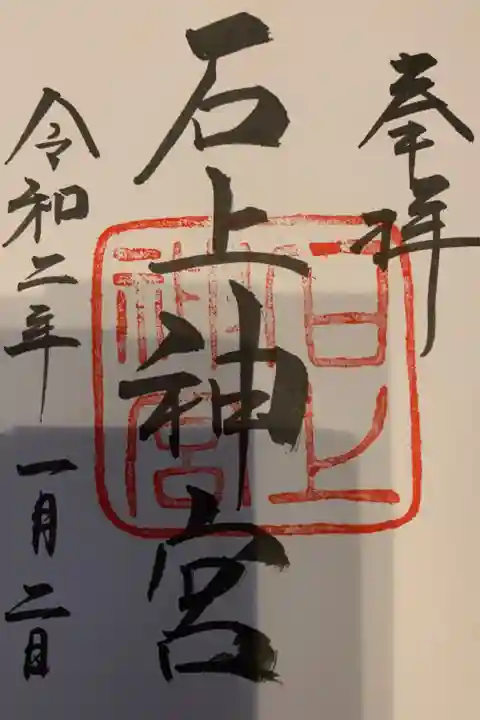 奉拝
石上神宮
石上神宮
令和二年一月二日